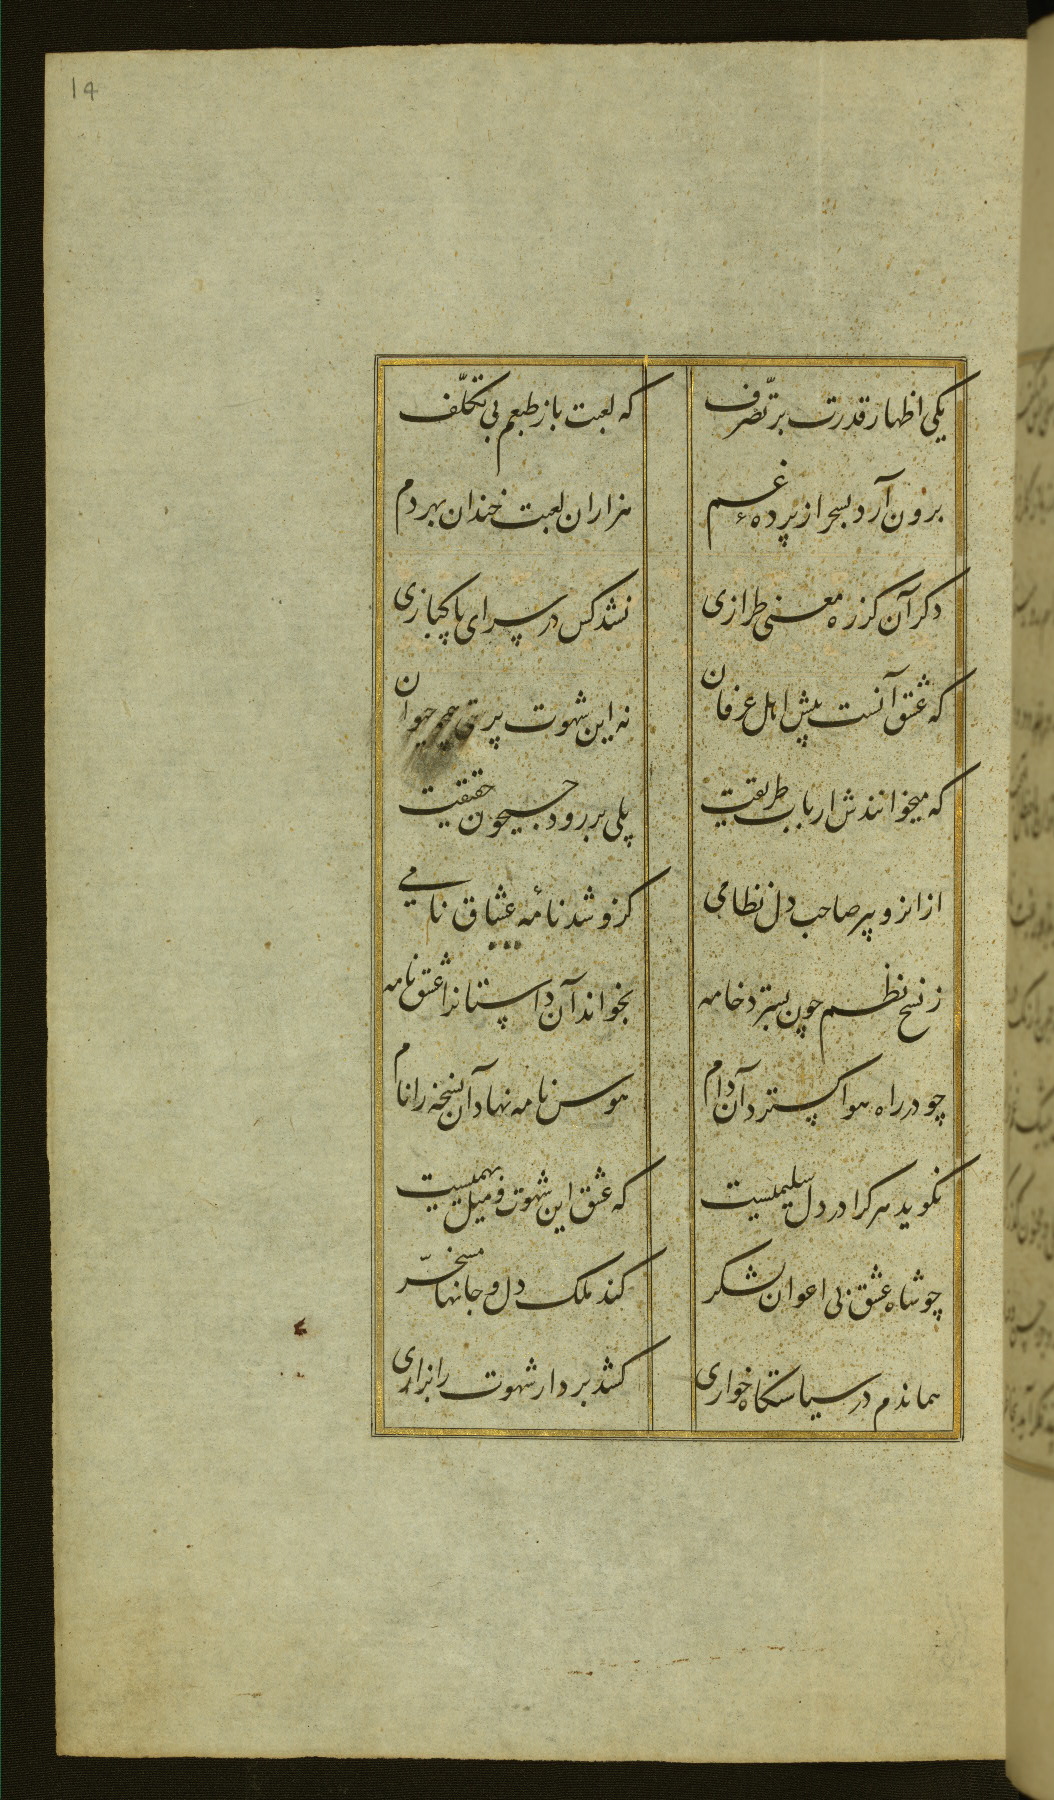 14
یکی اظهار قدرت بر تصرّف که لعبت باز طبعم بی تکلّف
برون آرد بسحر از پردهء غم هزاران لعبت خندان بهر دم
دکر آن کز ره معنی طرازی نشد کس در سرای پاکبازی
که عشق آنست پیش اهل عرفان نه این شهوت پرستی چو حیوان
که میخوانندش ارباب طریقت پلی بر رود جیحون حقیقت
از انرو پیر صاحب دل نظامی کزو شد نامهٔ عشاق نامی
ز نسخ نظم چون بسترد خامه بخواند آن داستانرا عشق نامه
چو در راه هوا کسترد آن دام هوس نامه نهاد آن نسخه را نام
نکوید هر کرا در دل سلیمیست که عشق این شهوت و میل بهیمیست
چو شاه عشق بی اعوان لشکر کند ملک دل و جانها مسخّر
هماندم در سیاستکاه خواری کشد بر دار شهوت را بزاری